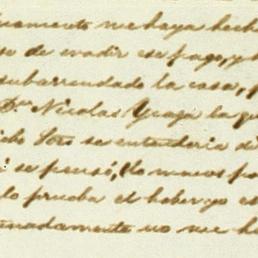 camente me haya hech
so de evadir ese pago, y h
subarrendado la casa, p
Dn Nicolas Yraza la qu
icho Soto se entenderia di
i se pensó, lo menos po
lo prueba el haber yo es
nadamente no me ha